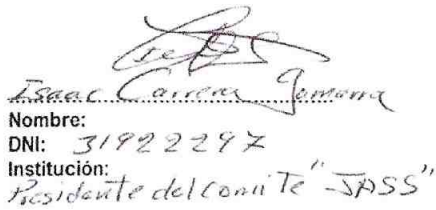 Isaac Carrera Gamarra
Nombre:
DNI: 31922297
Institución:
Presidente del Comite "JASS"